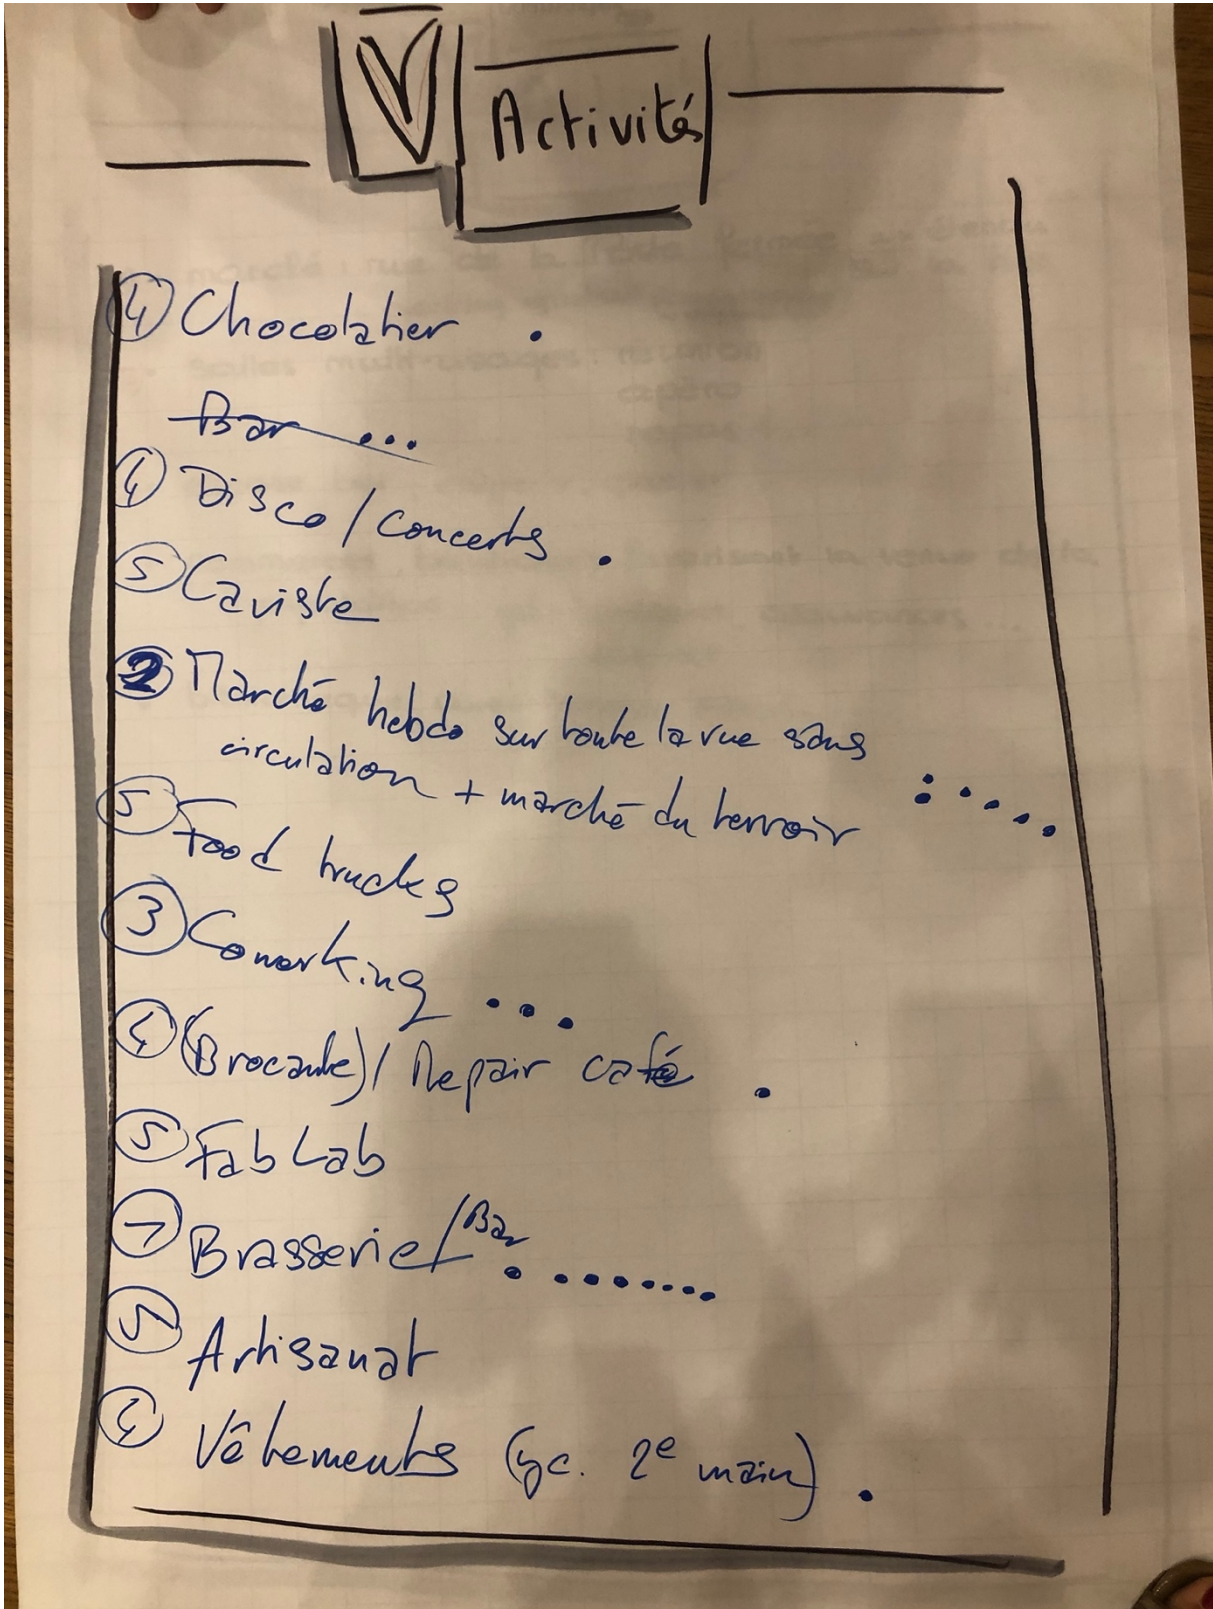 V Activités
④ Chocolatier .
Bar ...
④ Disco / Concerts .
⑤ Caviste
② Marché hebdo sur toute la rue sans
circulation + marché du terroir : . . . .
⑤ Food trucks
③ Coworking ...
④ (Brocante) / Repair café .
⑤ Fab Lab
① Brasserie / Bar . .......
⑤ Artisanat
④ Vêtements (yc. 2e main) .